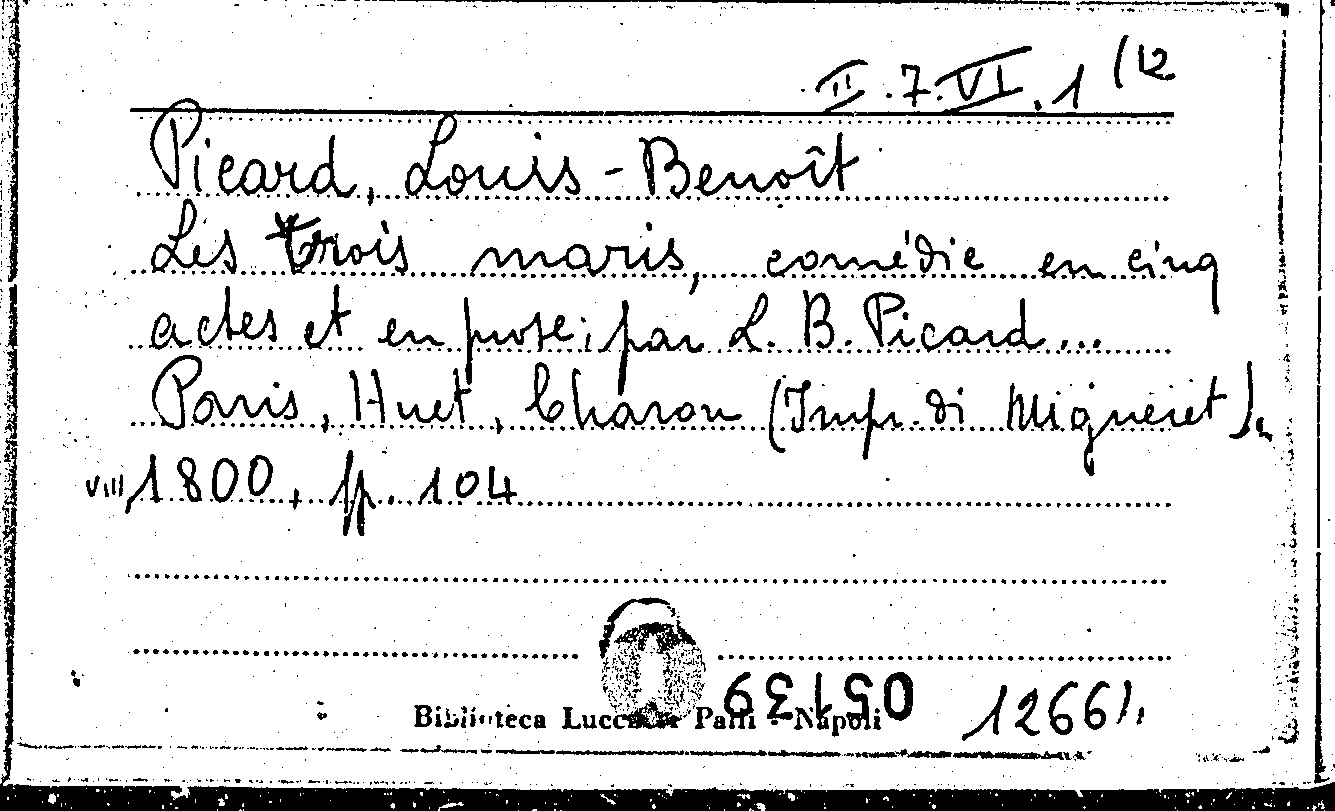 II.7.VI.1 (12
Picard, Louis-Benoît
Les trois maris, comédie en cinq
actes et en prose; par L. B. Picard...
Paris, Huet, Charon (Impr. di Migneret),
VIII, 1800, pp. 104
Biblioteca Lucchesi Palli - Napoli
05139
12661